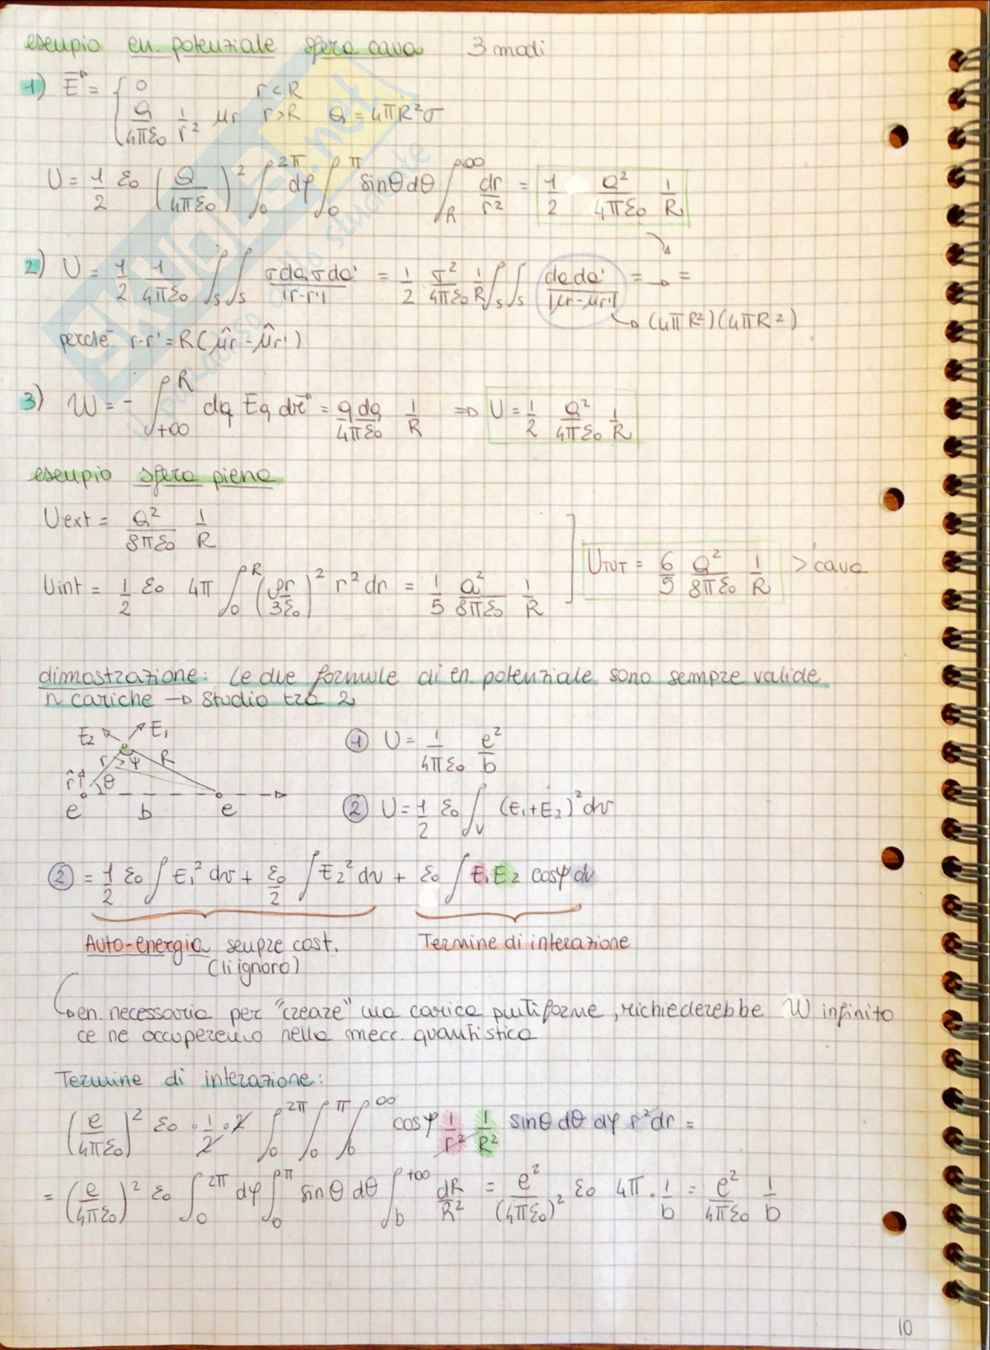 esempio en potenziale sfera cava 3 modi
1) E⃗ = { 0 r<R
Q/4πε₀ 1/r² μr r>R Q=4πR²σ
U = 1/2 ε₀ (Q/4πε₀)² ∫₀^2π dφ ∫₀^π sinθdθ ∫_R^∞ dr/r² = 1/2 Q²/4πε₀ 1/R
2) U = 1/2 1/4πε₀ ∫_S∫_S σda σda'/|r-r'| = 1/2 σ²/4πε₀ 1/R ∫_S∫_S dada'/|μr-μr'| = → =
→ (4πR²)(4πR²)
perché r-r' = R(μ̂r-μ̂r')
3) W = - ∫_+∞^R dq Eq dr⃗ = q dq/4πε₀ 1/R ⇒ U = 1/2 Q²/4πε₀ 1/R
esempio sfera piena
Uext = Q²/8πε₀ 1/R
UTOT = 6/5 Q²/8πε₀ 1/R > cava
Uint = 1/2 ε₀ 4π ∫₀^R (ρr/3ε₀)² r²dr = 1/5 Q²/8πε₀ 1/R
dimostrazione: le due formule di en potenziale sono sempre valide
n cariche → studio tra 2
E₂ E₁
r ψ R
r̂ θ
e b e
1 U = 1/4πε₀ e²/b
2 U = 1/2 ε₀ ∫_V (E₁+E₂)² dv
2 = 1/2 ε₀ ∫ E₁² dv + ε₀/2 ∫ E₂² dv + ε₀ ∫ E₁E₂ cosψ dv
Auto-energia sempre cost. Termine di interazione
(li ignoro)
→ en. necessaria per "creare" una carica puntiforme, richiederebbe W infinito
ce ne occuperemo nella mecc. quantistica
Termine di interazione:
(e/4πε₀)² ε₀ · 1/2 · 2 ∫₀^2π ∫₀^π ∫₀^∞ cosψ 1/r² 1/R² sinθ dθ dφ r²dr =
= (e/4πε₀)² ε₀ ∫₀^2π dφ ∫₀^π sinθ dθ ∫_b^+∞ dR/R² = e²/(4πε₀)² ε₀ 4π · 1/b = e²/4πε₀ 1/b
10